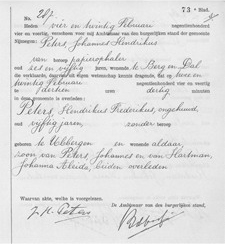 73 e Blad.
No. 267.
Heden vier en twintig Februari negentienhonderd
vier en veertig, verscheen voor mij Ambtenaar van den burgerlijken stand der gemeente
Nijmegen: Peters, Johannes Hendrikus
van beroep papierophaler
oud zes en vijftig jaren, wonende te Berg en Dal
die verklaarde, dat op
Februari negentienhonderd vier en veertig
des uur dertig minuten
in deze gemeente is overleden:
Peters, Hendrikus Frederikus, ongehuwd
oud vijftig jaren, zonder beroep
geboren te Ubbergen en wonende aldaar
zoon van Peters, Johannes en van Hartman,
Johanna Aleida, beiden overleden
Waarvan akte, welke is voorgelezen.
De Ambtenaar van den burgerlijken stand,
J. H. Peters